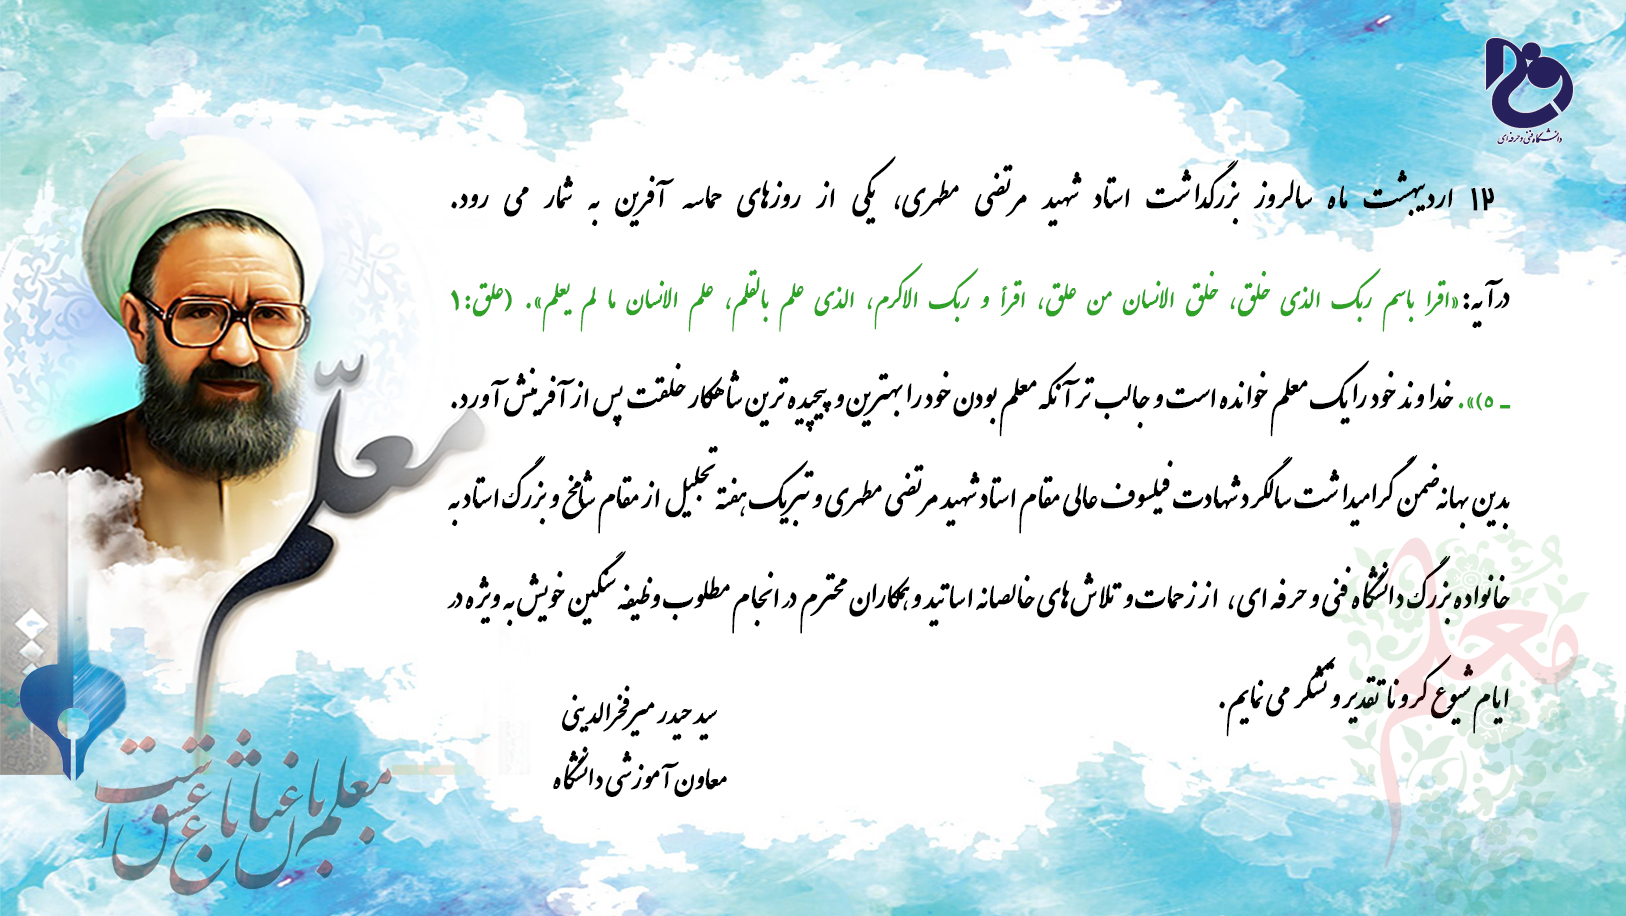 دانشگاه فنی و حرفه‌ای
۱۲ اردیبهشت ماه سالروز بزرگداشت استاد شهید مرتضی مطهری، یکی از روزهای حماسه آفرین به شمار می رود.
در آیه: «اقرا باسم ربک الذی خلق، خلق الانسان من علق، اقرأ و ربک الاکرم، الذی علم بالقلم، علم الانسان ما لم یعلم». (علق:۱
ـ ۵)». خداوند خود را یک معلم خوانده است و جالب تر آنکه معلم بودن خود را بهترین و پیچیده ترین شاهکار خلقت پس از آفرینش آورد.
بدین بهانه ضمن گرامیداشت سالگرد شهادت فیلسوف عالی مقام استاد شهید مرتضی مطهری و تبریک هفته تجلیل از مقام شامخ و بزرگ استاد به
خانواده بزرگ دانشگاه فنی و حرفه ای، از زحمات و تلاش های خالصانه اساتید و همکاران محترم در انجام مطلوب وظیفه سنگین خویش به ویژه در
ایام شیوع کرونا تقدیر و تشکر می نمایم.
سید حیدر میرفخرالدینی
معاون آموزشی دانشگاه
معلّم
معلم
معلم باغبان باغ عشق است